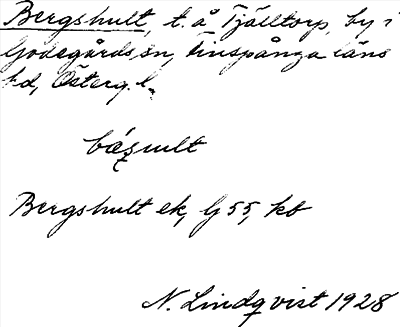 Bergshult, t. å Fjälltorp, by i
Godegårds sn, Finspånga läns
hd, Österg. l.
bá̱ʂult
Bergshult ek, G 55, kb
N. Lindqvist 1928